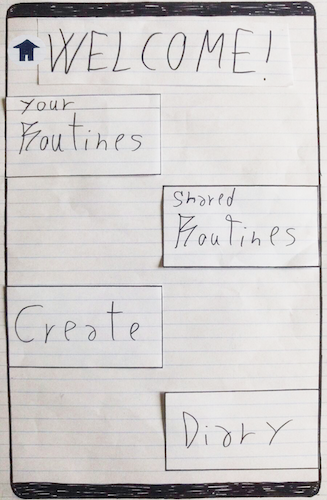 WELCOME!
Your
Routines
Shared
Routines
Create
Diary